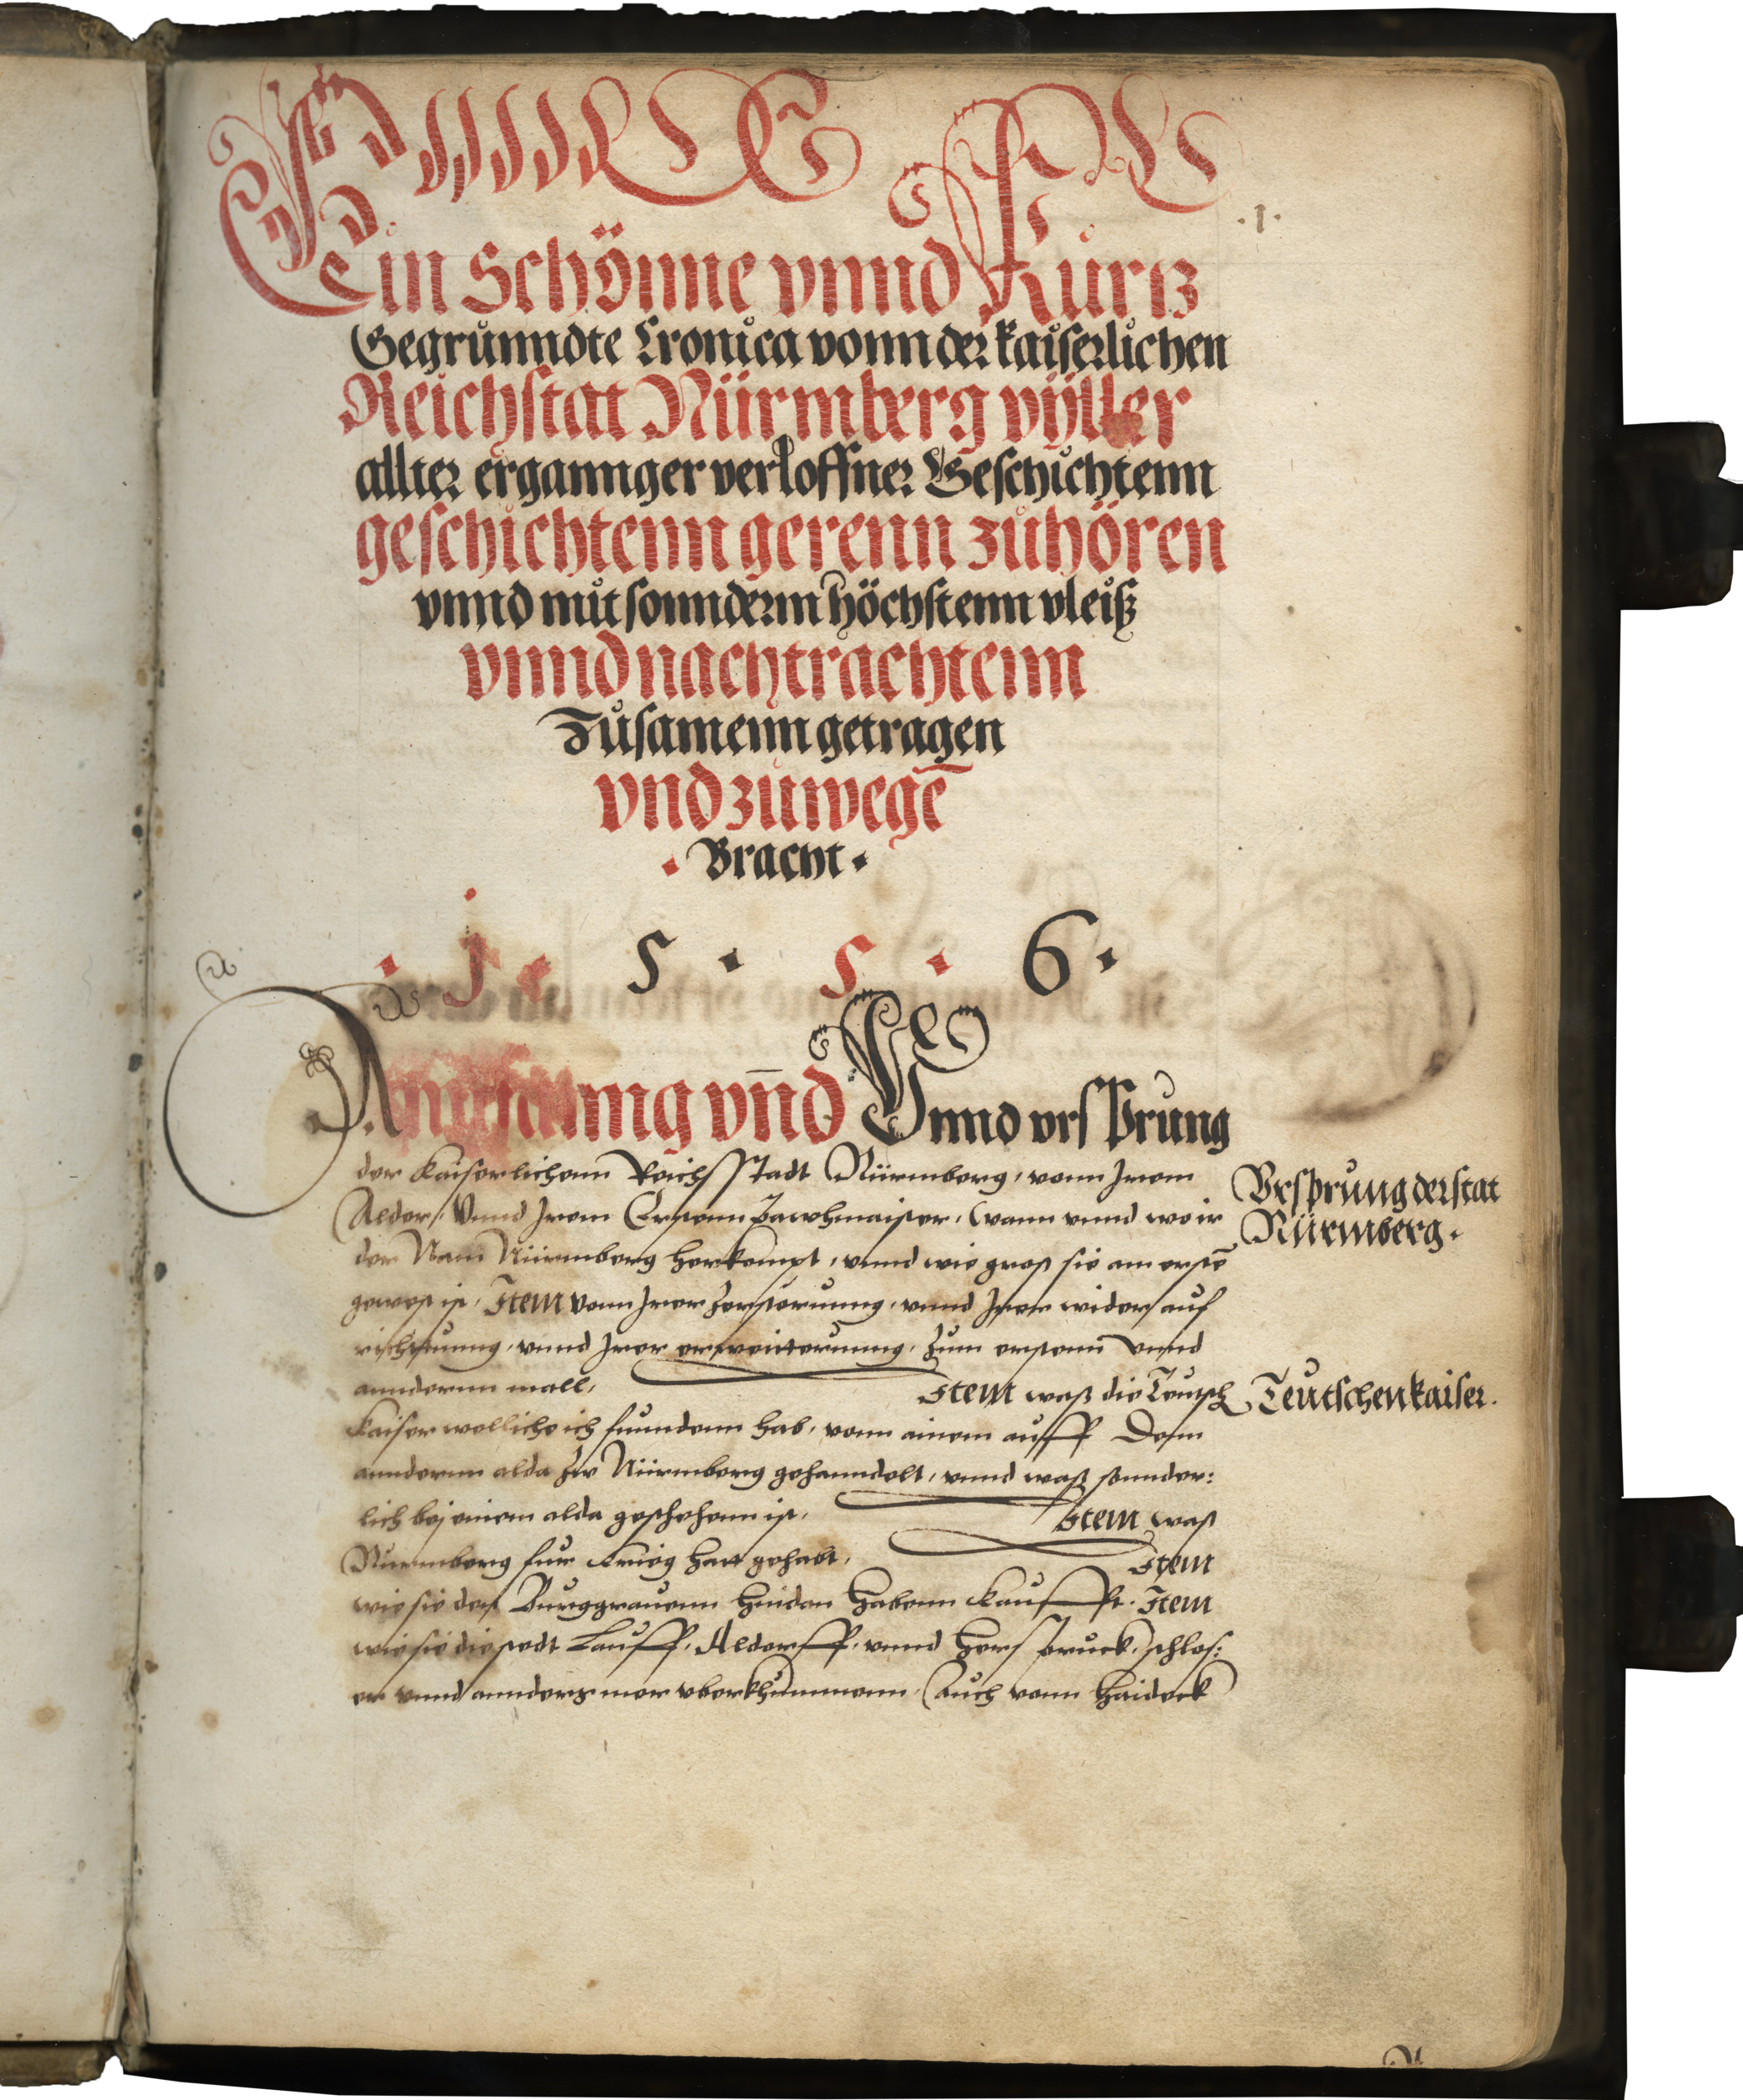 ·1·
Ein Schönne vnnd Kurtz
Gegrunndte Cronica vonn der kaiserlichen
Reichstat Nürmberg vyller
allter ergannger verloffner Geschichtenn
geschichtenn gerenn zuhören
vnnd mit sonnderm höchstenn vleiß
vnnd nachtrachtenn
Zusamenn getragen
vnd zuwegē
· Bracht ·
· 1 · 5 · 5 · 6 ·
vn̄d Vnnd vrsprung
der kaiserlichenn Reichsstadt Nürmberg, vonn Jrem
Alder, Vnnd Jrem Erstenn, wann vnnd wo ir
der Nam Nürmberg herkompt, vnnd wie groß sie am erstē
gewest ist, Item vonn Jrer zerstorunng, vnnd Jrer wider auf
richtunng, vnnd Jrer erweitterunng, zum erstenn vnnd
annderen mall,
Item waß die Teutsch
kaiser welliche ich funndenn hab, vonn ainem auff Denn
annderen alda zw Nürmberg gehanndelt, vnnd waß sonnder:
lich bej einem alda geschehenn ist,
Item waß
Nurmberg fur krieg hatt gehabt,
Item
wie sie den Burggrauenn hindan habenn kaufft. Item
wie sie die stedt Lauff, Aldorff, vnnd herspruck, schlos:
er vnnd annders mer vberkhummenn, Auch vonn haideck
Vrsprung der stat
Nürmberg.
Teutschen kaiser.